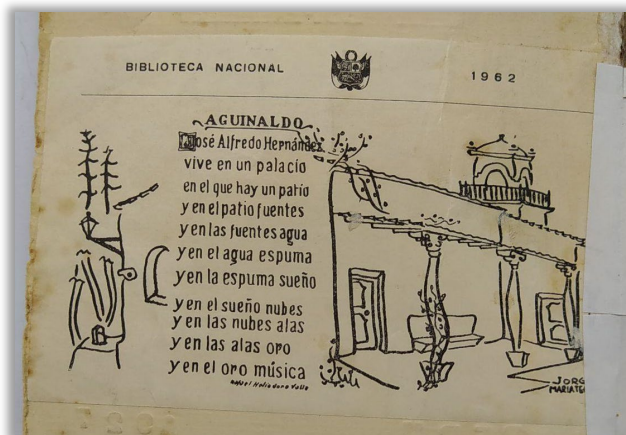 BIBLIOTECA NACIONAL
1962
AGUINALDO
José Alfredo Hernández
vive en un palacio
en el que hay un patio
y en el patio fuentes
y en las fuentes agua
y en el agua espuma
y en la espuma sueño
y en el sueño nubes
y en las nubes alas
y en las alas oro
y en el oro música
Rafael Heliodoro Valle
JORG
MARIATE